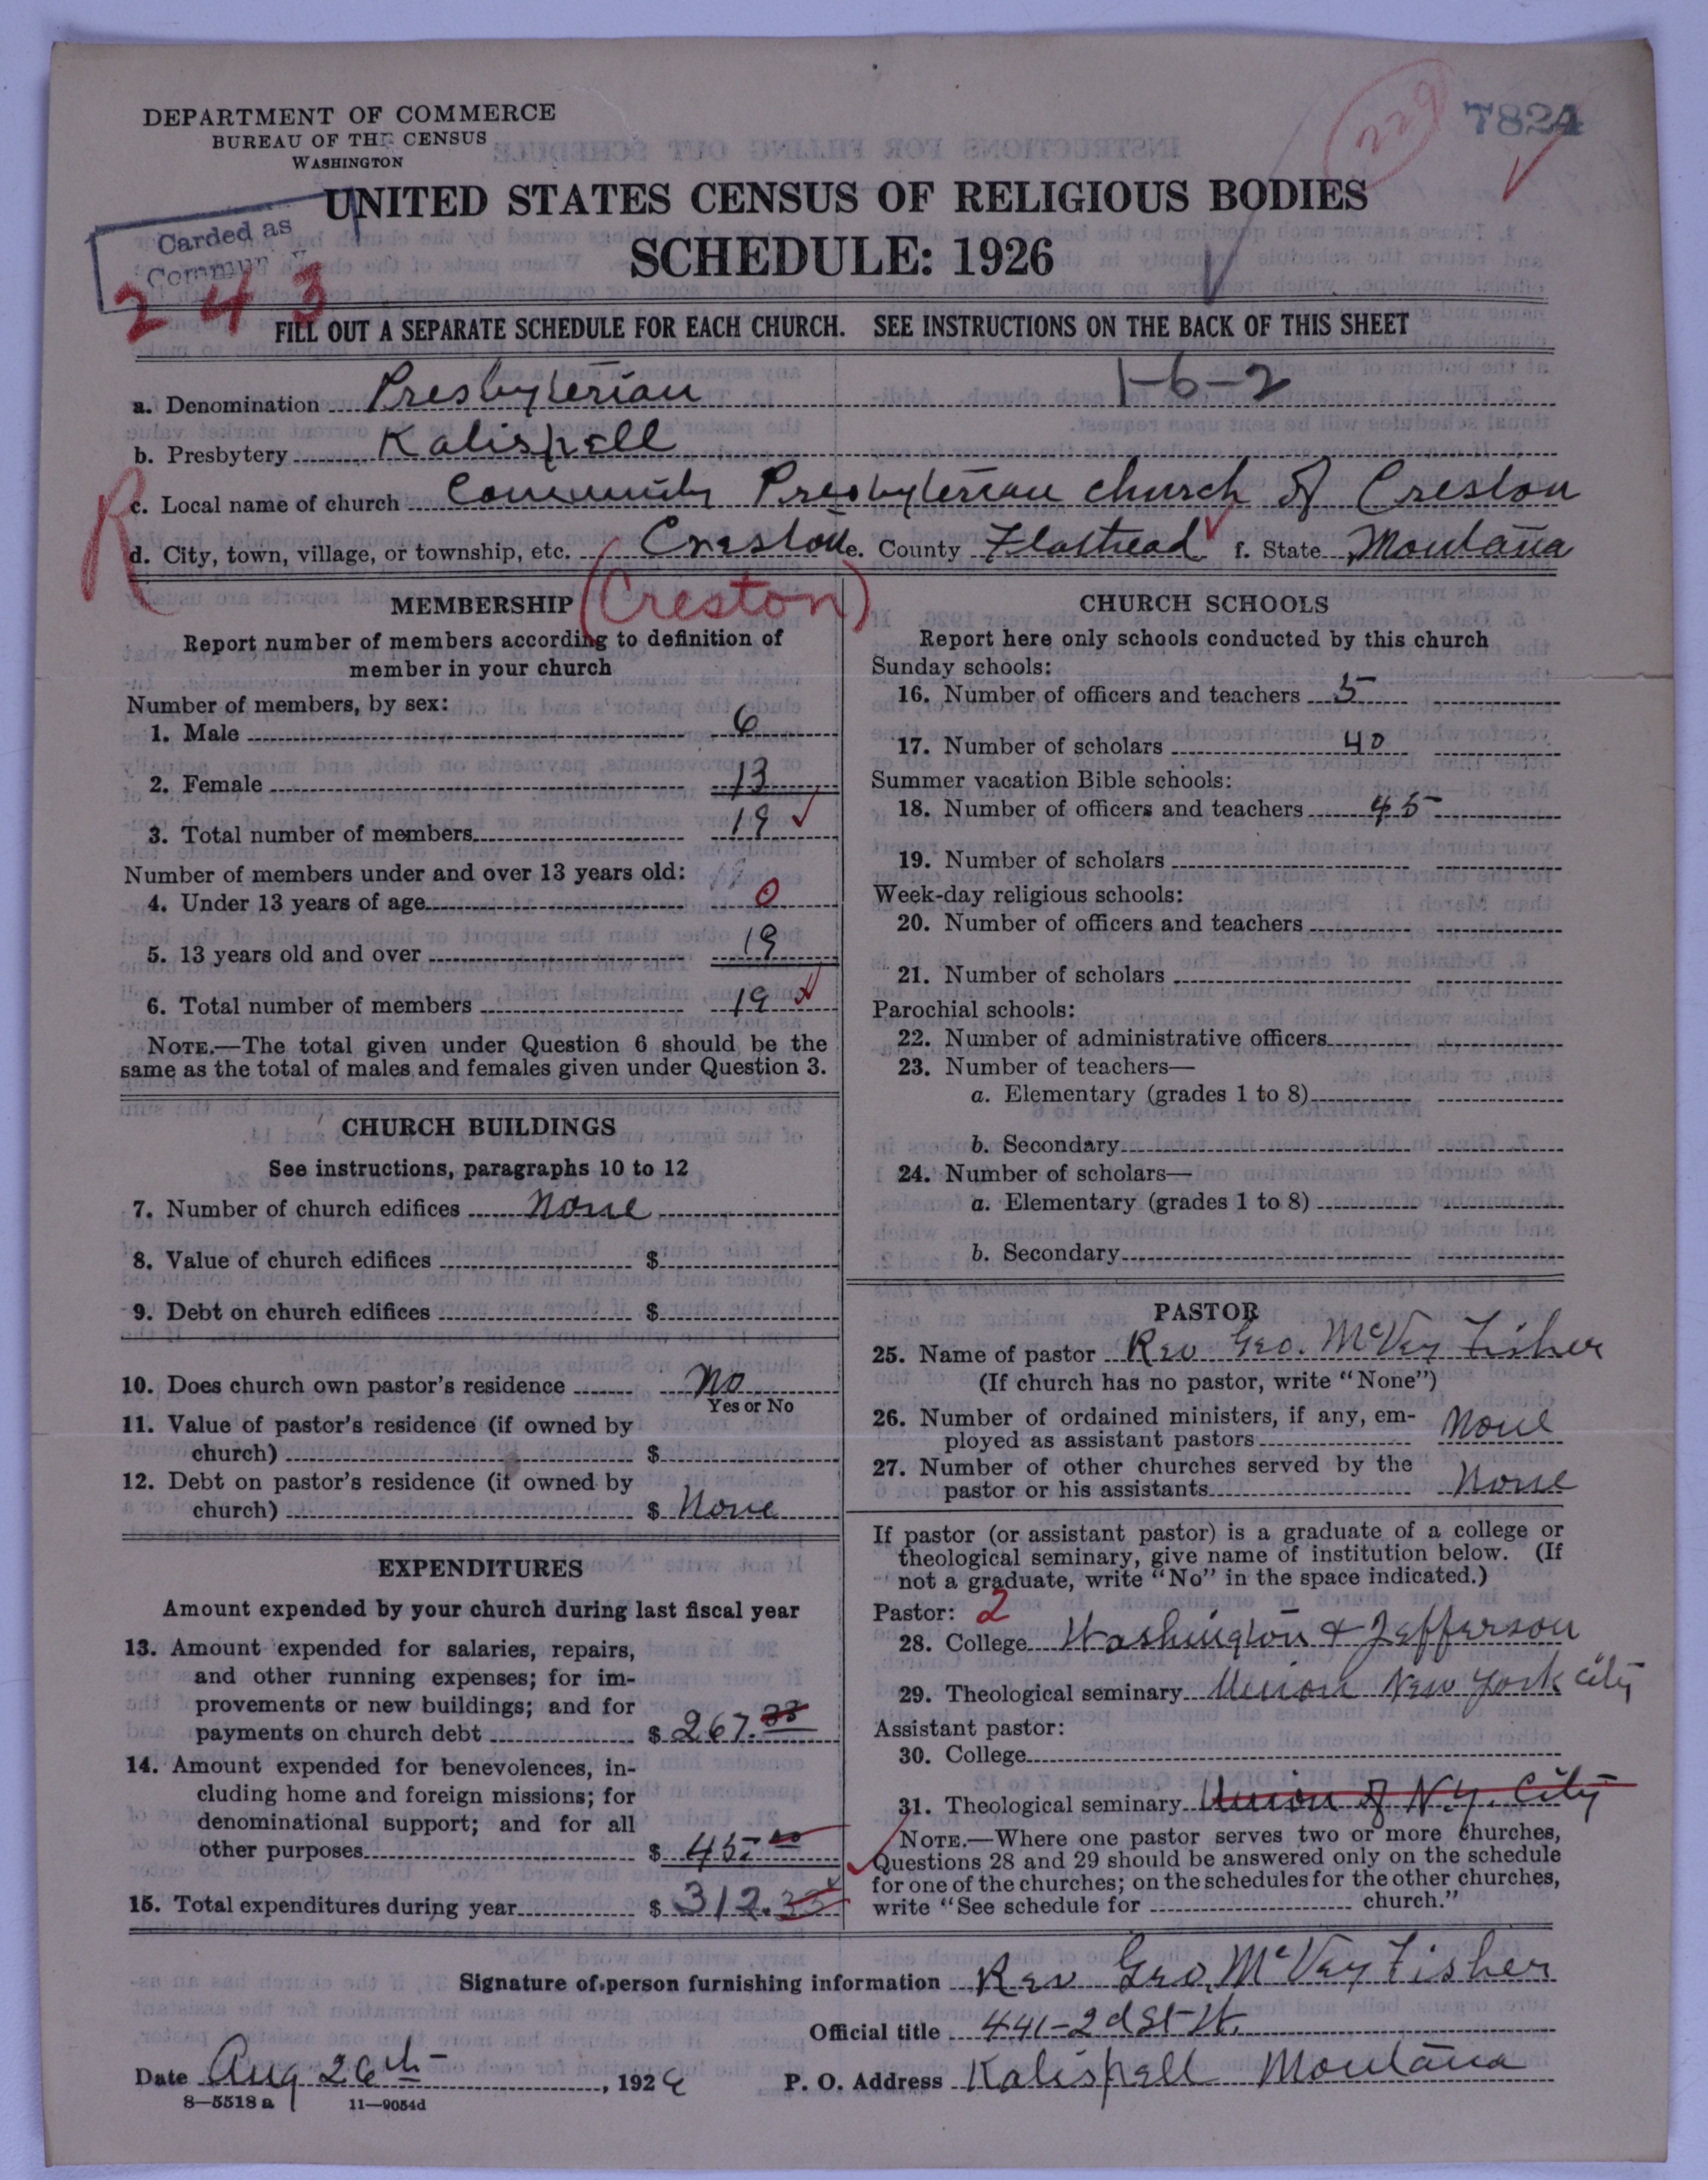 7824
229
DEPARTMENT OF COMMERCE
BUREAU OF THE CENSUS
WASHINGTON
UNITED STATES CENSUS OF RELIGIOUS BODIES
SCHEDULE: 1926
Carded as
243
FILL OUT A SEPARATE SCHEDULE FOR EACH CHURCH. SEE INSTRUCTIONS ON THE BACK OF THIS SHEET
1-6-2
a. Denomination Presbyterian
b. Presbytery Kalispell
R
c. Local name of church Community Presbyterian church of Creston
d. City, town, village, or township, etc. Creston e. County Flathead f. State Montana
(Creston)
MEMBERSHIP
Report number of members according to definition of
member in your church
Number of members, by sex:
1. Male 6
2. Female 13
3. Total number of members 19
Number of members under and over 13 years old:
4. Under 13 years of age 0
5. 13 years old and over 19
6. Total number of members 19
NOTE.—The total given under Question 6 should be the
same as the total of males and females given under Question 3.
CHURCH BUILDINGS
See instructions, paragraphs 10 to 12
7. Number of church edifices None
8. Value of church edifices $
9. Debt on church edifices $
10. Does church own pastor's residence No
Yes or No
11. Value of pastor's residence (if owned by
church) $
12. Debt on pastor's residence (if owned by
church) $ None
EXPENDITURES
Amount expended by your church during last fiscal year
13. Amount expended for salaries, repairs,
and other running expenses; for im-
provements or new buildings; and for
payments on church debt $ 267.33
14. Amount expended for benevolences, in-
cluding home and foreign missions; for
denominational support; and for all
other purposes $ 45.00
15. Total expenditures during year $ 312.33
CHURCH SCHOOLS
Report here only schools conducted by this church
Sunday schools:
16. Number of officers and teachers 5
17. Number of scholars 40
Summer vacation Bible schools:
18. Number of officers and teachers 45
19. Number of scholars
Week-day religious schools:
20. Number of officers and teachers
21. Number of scholars
Parochial schools:
22. Number of administrative officers
23. Number of teachers—
a. Elementary (grades 1 to 8)
b. Secondary
24. Number of scholars—
a. Elementary (grades 1 to 8)
b. Secondary
PASTOR
25. Name of pastor Rev Geo. McVey Fisher
(If church has no pastor, write "None")
26. Number of ordained ministers, if any, em-
ployed as assistant pastors None
27. Number of other churches served by the
pastor or his assistants None
If pastor (or assistant pastor) is a graduate of a college or
theological seminary, give name of institution below. (If
not a graduate, write "No" in the space indicated.)
Pastor: 2
28. College Washington & Jefferson
29. Theological seminary Union New York City
Assistant pastor:
30. College
31. Theological seminary Union of N.Y. City
NOTE.—Where one pastor serves two or more churches,
Questions 28 and 29 should be answered only on the schedule
for one of the churches; on the schedules for the other churches,
write "See schedule for church."
Signature of person furnishing information Rev Geo. McVey Fisher
Official title 441-2d St W.
Date Aug 26th, 192 P. O. Address Kalispell Montana
8—5518a 11—9054d